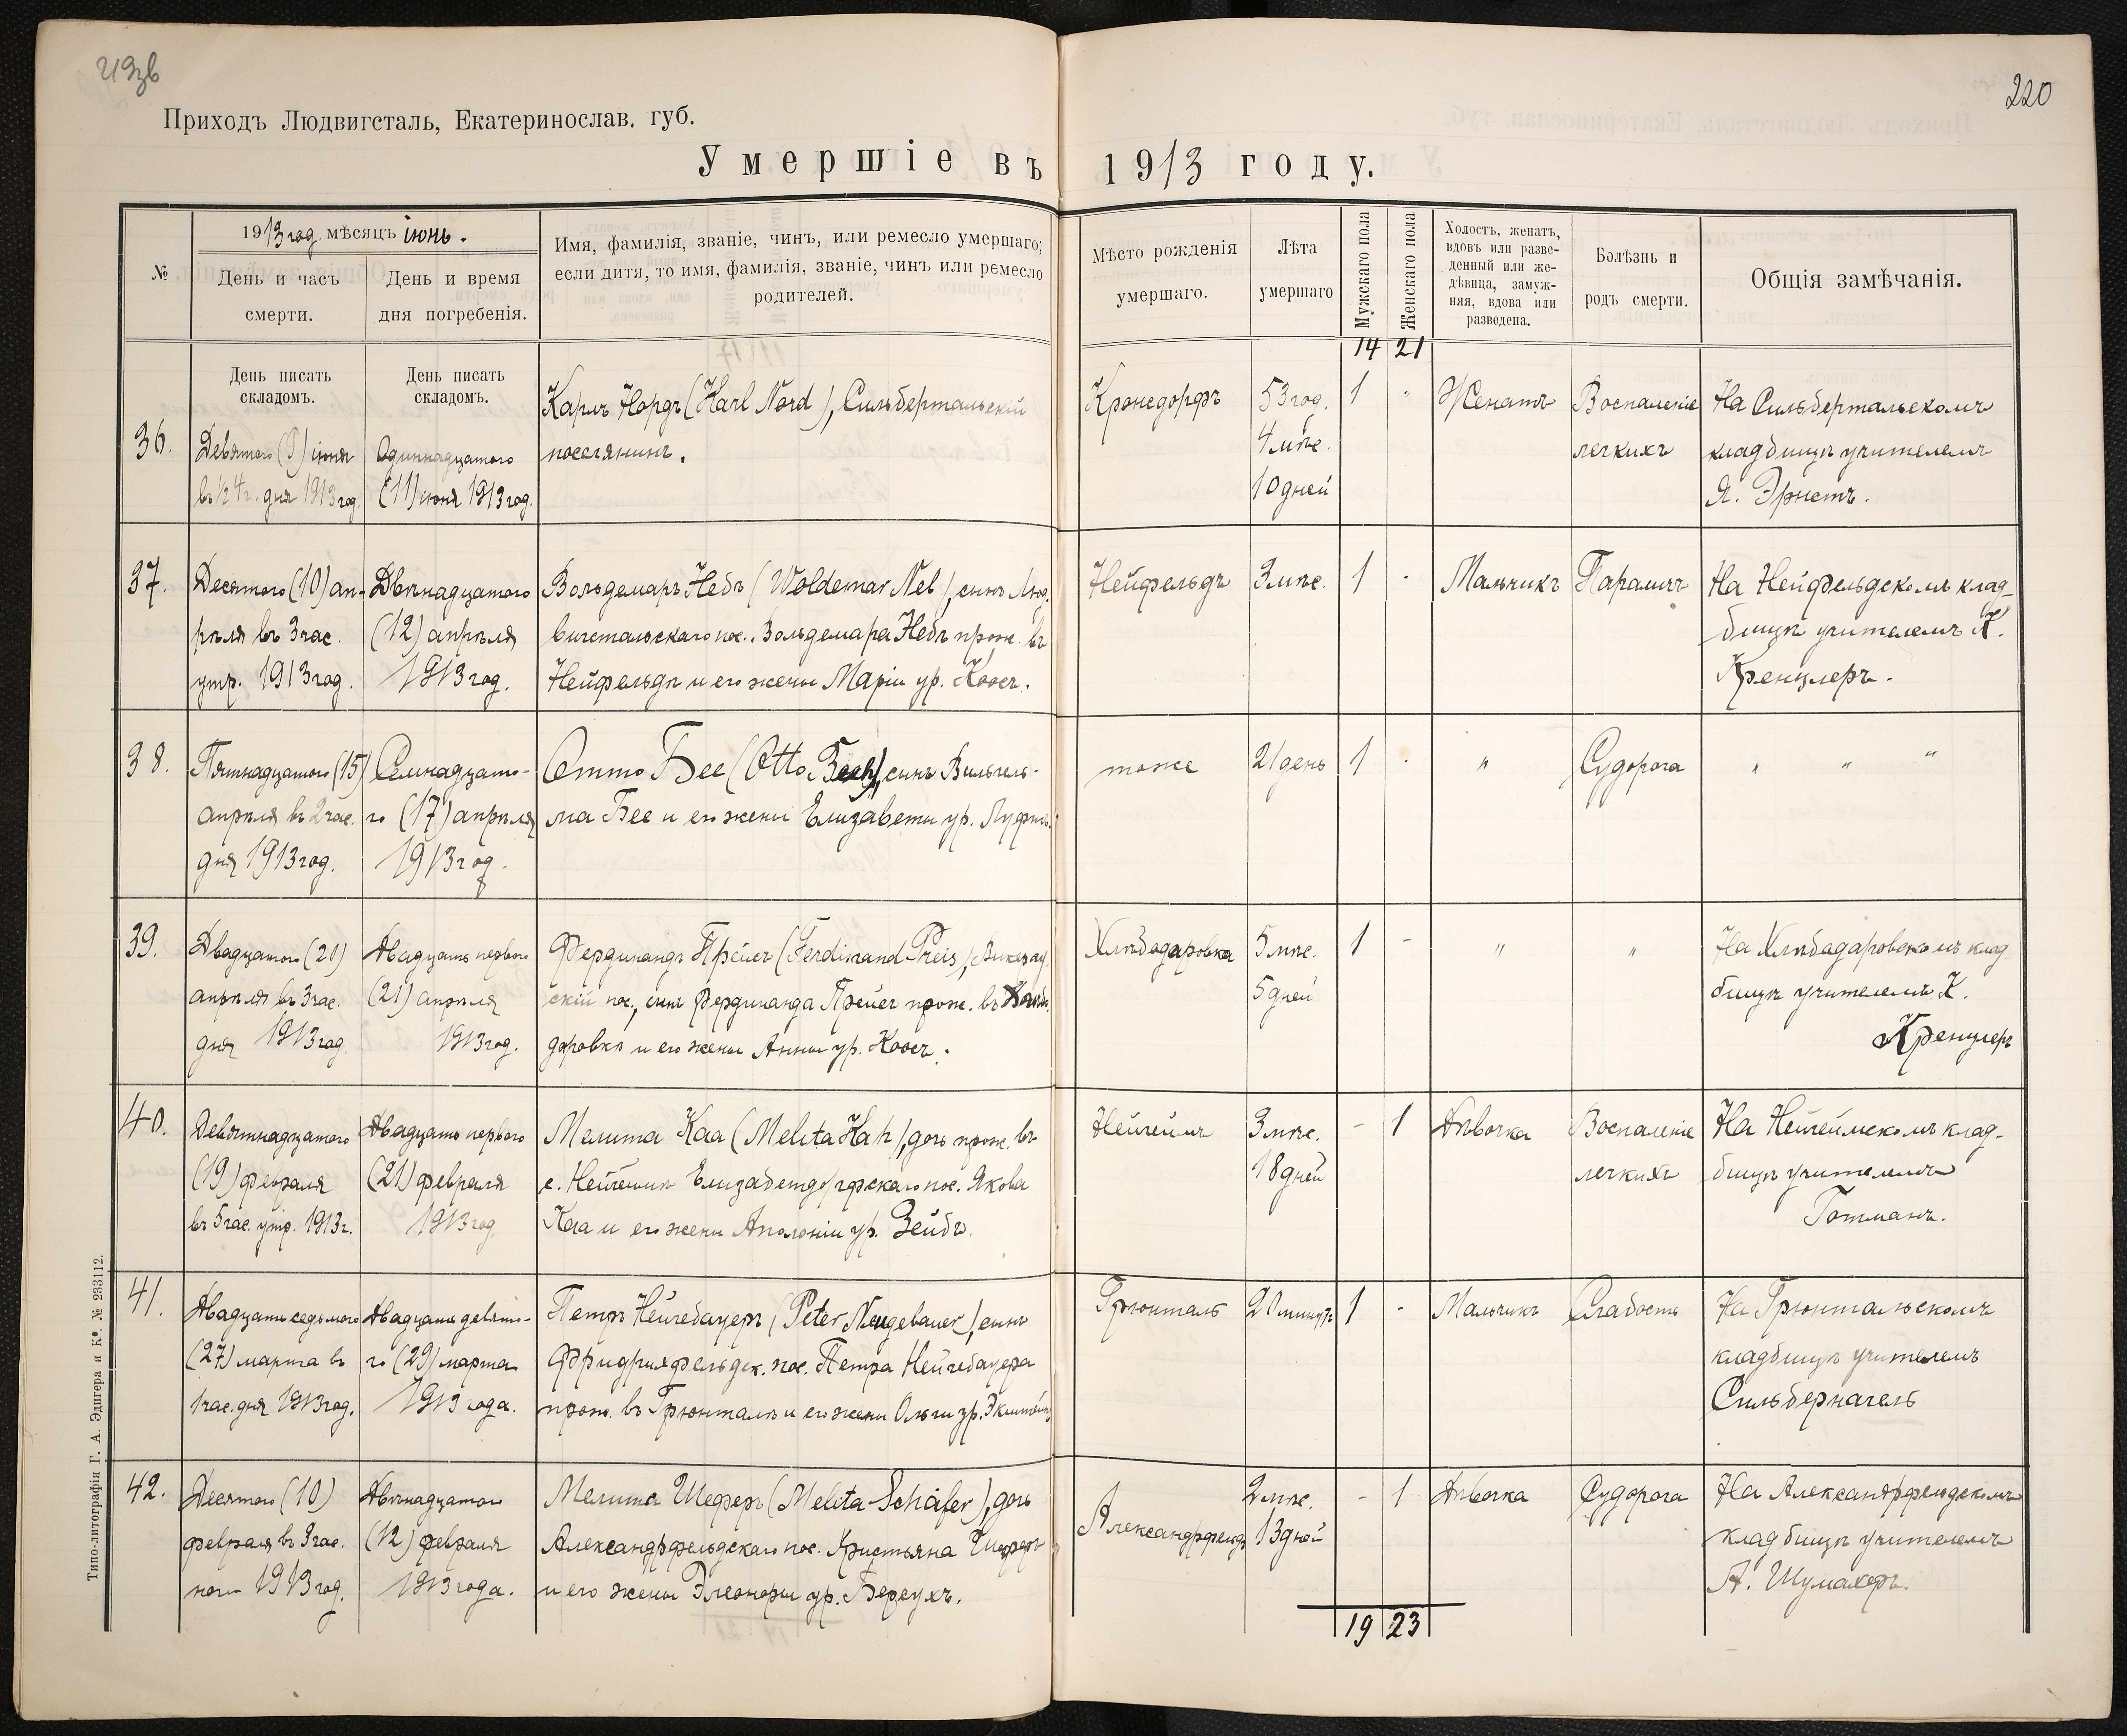 Изв
220
Приходъ Людвигсталь, Екатеринослав. губ.
Умершіе въ 1913 году.
№
1913 год. мѣсяцъ іюнь.
День и часъ смерти.
День и время дня погребенія.
Имя, фамилія, званіе, чинъ, или ремесло умершаго;
если дитя, то имя, фамилія, званіе, чинъ или ремесло
родителей.
Мѣсто рожденія умершаго.
Лѣта умершаго
Мужскаго пола
Женскаго пола
Холостъ, женатъ,
вдовъ или разве-
денный или же-
дѣвица, замуж-
няя, вдова или
разведена.
Болѣзнь и родъ смерти.
Общія замѣчанія.
14 21
День писать складомъ.
День писать складомъ.
36.
Девятого (9) іюня
въ ½ 4 ч. дня 1913 год.
Одиннадцатого
(11) іюня 1913 год.
Карлъ Нордъ (Karl Nord), Сильбертальскій
поселянинъ.
Кронсдорфъ
53 год.
4 мѣс.
10 дней
1
-
Женатъ
Воспаленіе
легкихъ
На Сильбертальскомъ
кладбищѣ учителемъ
Я. Эрнстъ.
37.
Десятого (10) ап-
рѣля въ 3 час.
утр. 1913 год.
Двѣнадцатого
(12) апрѣля
1913 год.
Вольдемаръ Небъ (Woldemar Neb), сынъ Люд-
вигстальскаго пос. Вольдемара Небъ прож. въ
Нейфельдѣ и его жены Маріи ур. Коосъ.
Нейфельдъ
3 мѣс.
1
-
Мальчикъ
Параличъ
На Нейфельдскомъ клад-
бищѣ учителемъ К.
Кренцлеръ.
38.
Пятнадцатого (15)
апрѣля въ 2 час.
дня 1913 год.
Семнадцато-
го (17) апрѣля
1913 год.
Отто Бее (Otto Beeh), сынъ Вильгель-
ма Бее и его жены Елизаветы ур.
тоже
21 день
1
-
"
Судорога
" " "
39.
Двадцатого (20)
апрѣля въ 3 час.
дня 1913 год
Двадцать перваго
(21) апрѣля
1913 год.
Фердинандъ Прейсъ (Ferdinand Preis),
скій пос., сынъ Фердинанда Прейсъ прож. въ Хлѣбо-
даровкѣ и его жены Анны ур. Коосъ.
Хлѣбодаровка
5 мѣс.
5 дней
1
-
"
"
На Хлѣбадаровскомъ клад
бищѣ учителемъ К.
Кренцлеръ
40.
Девятнадцатого
(19) февраля
въ 5 час. утр. 1913 г.
Двадцать перваго
(21) февраля
1913 год
Мелита Каа (Melita Kah), дочь прож. въ
с. Нейгеймъ Елизабетдорфскаго пос. Якова
Каа и его жены Аполоніи ур. Зейбъ.
Нейгеймъ
3 мѣс.
18 дней
-
1
Дѣвочка
Воспаленіе
легкихъ
На Нейгеймскомъ клад-
бищѣ учителемъ
Готманъ.
41.
Двадцать седьмого
(27) марта въ
1 час. дня 1913 год.
Двадцать девято-
го (29) марта
1913 года.
Петръ Нейгебауеръ (Peter Neugebauer), сынъ
Фридрихфельдск. пос. Петра Нейгебауера
прож. въ Грюнталѣ и его жены Ольги ур.
Грюнталь
20 минутъ
1
-
Мальчикъ
Слабость
На Грюнтальскомъ
кладбищѣ учителемъ
Сильбернагель
42.
Десятого (10)
февраля въ 3 час.
ночи 1913 год.
Двѣнадцатого
(12) февраля
1913 года.
Мелита Шеферъ (Melita Schäfer), дочь
Александрфельдскаго пос. Кристьяна Шеферъ
и его жены Элеоноры ур.
Александрфельдъ
2 мѣс.
13 дней
-
1
Дѣвочка
Судорога
На Александрфельдскомъ
кладбищѣ учителемъ
А. Шумахеръ.
19 23
Типо-литографія Г. А. Эдигера и Кº. № 233112.